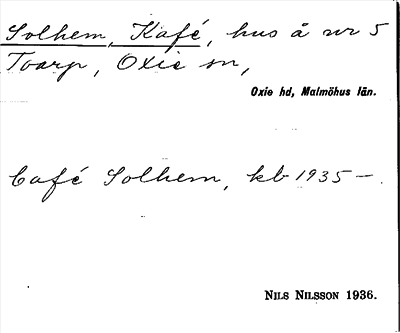 Solhem, Kafé, hus å nr 5
Toarp, Oxie sn,
Oxie hd, Malmöhus län.
Café Solhem, kb 1935 –.
NILS NILSSON 1936.